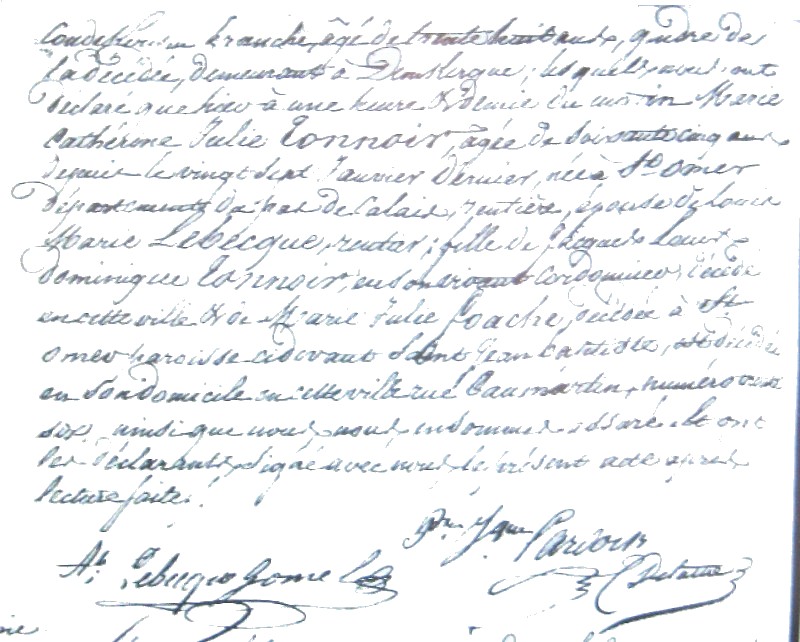 branche, âgé de trente huit ans, gendre de
la décédée, demeurant à Dunkerque; lesquels nous ont
déclaré que hier à une heure & demie du matin Marie
Catherine Julie Tonnoir, agée de soixante cinq ans
depuis le vingt sept Janvier dernier, née à St Omer
département du pas de Calais, rentière, épouse de Louis
Marie Lebecque, rentier; fille de Jacques Louis
dominique Tonnoir, en son vivant Cordonnier, décédé
en cette ville & de Marie Julie Coache, décédée à St
omer paroisse cidevant Saint Jean Baptiste, est décédée
en son domicile en cette ville rue Caumartin, numéro
six, ainsi que nous nous en sommes assuré. Et ont
les déclarants signé avec nous le présent acte après
lecture faite.
Lebecque Gomel